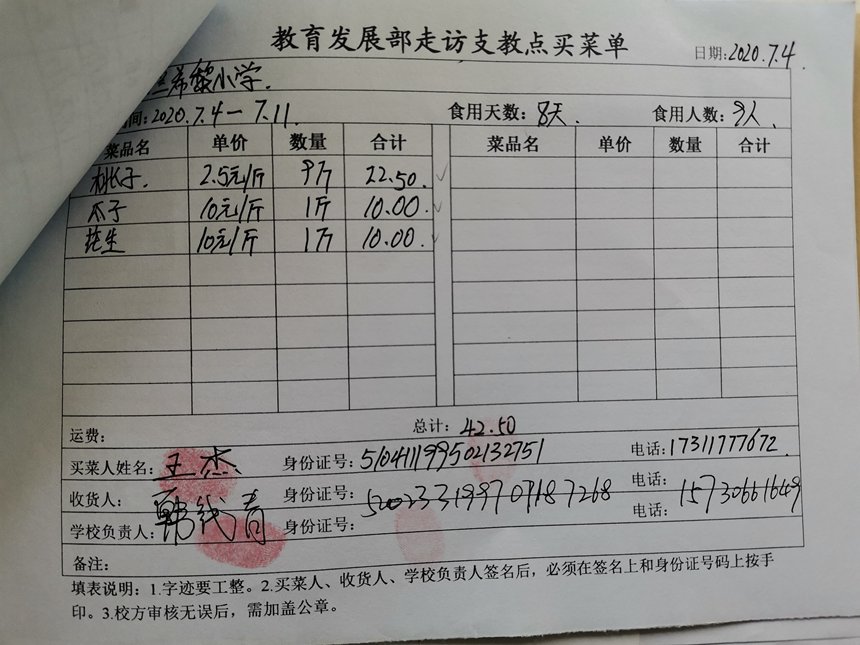 教育发展部走访支教点买菜单
日期:2020.7.4
希黎小学.
间:2020.7.4一7.11. 食用天数:8天. 食用人数:9人.
菜品名 单价 数量 合计 菜品名 单价 数量 合计
桃子. 2.5元/斤 9斤 22.50. ✓
瓜子 10元/斤 1斤 10.00. ✓
花生 10元/斤 1斤 10.00. ✓
运费: 总计: 42.50
买菜人姓名: 王杰 身份证号: 510411199502132751 电话: 17311777672.
收货人: 身份证号: 电话:
韩 青 500233199709187268 15730661649
学校负责人: 身份证号: 电话:
备注:
填表说明: 1.字迹要工整。2.买菜人、收货人、学校负责人签名后，必须在签名上和身份证号码上按手
印。3.校方审核无误后，需加盖公章。